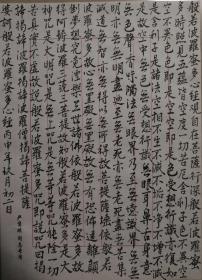 般若波羅蜜多心經觀自在菩薩行深般若波羅蜜
多時照見五蘊皆空度一切苦厄舍利子色不異
空空不異色色即是空空即是色受想行識亦復
如是舍利子是諸法空相不生不滅不垢不淨不增不減
是故空中無色無受想行識無眼耳鼻舌身意
無色聲香味觸法無眼界乃至無意識界無無
明亦無無明盡乃至無老死亦無老死盡無苦集
滅道無智亦無得以無所得故菩提薩埵依般若
波羅蜜多故心無罣礙無罣礙故無有恐怖遠離顛
倒夢想究竟涅槃三世諸佛依般若波羅蜜多故
得阿耨多羅三藐三菩提故知般若波羅蜜多是大
神咒是大明咒是無上咒是無等等咒能除一切
苦真實不虛故說般若波羅蜜多咒即說咒曰揭
諦揭諦波羅揭諦波羅僧揭諦菩提薩婆訶
摩訶般若波羅蜜多經丙申年玖月初二日